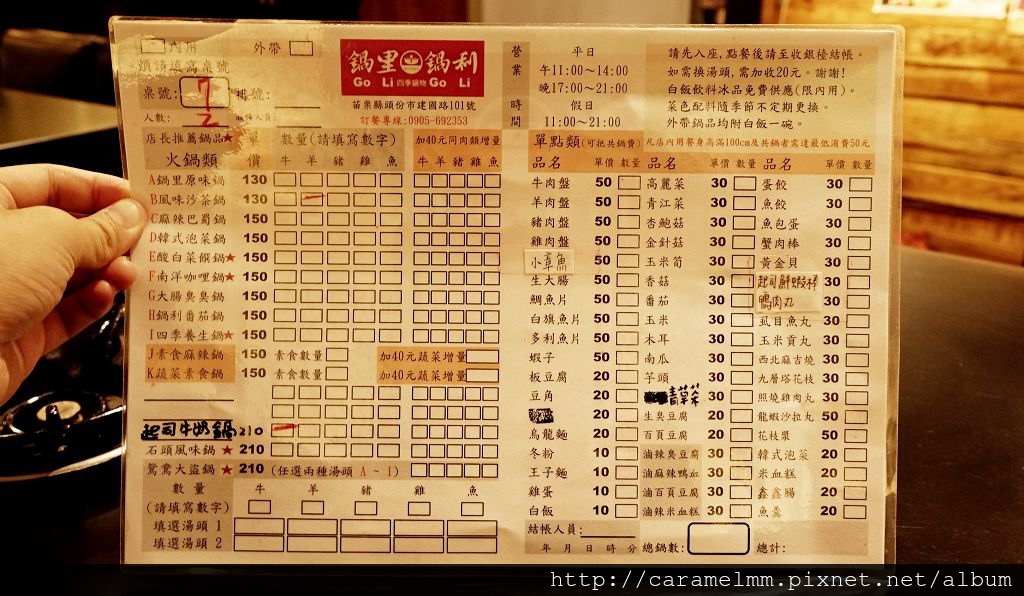 內用 外帶
煩請填寫桌號
桌號: 7
人數: 2
鍋里鍋利
Go Li 四季鍋物 Go Li
苗栗縣頭份市建國路101號
訂餐專線:0905-692353
營業時間
平日
午11:00~14:00
晚17:00~21:00
假日
11:00~21:00
請先入座,點餐後請至收銀檯結帳。
如需換湯頭,需加收20元。謝謝!
白飯飲料冰品免費供應(限內用)。
菜色配料隨季節不定期更換。
外帶鍋品均附白飯一碗。
店長推薦鍋品★ 單價 數量(請填寫數字) 加40元同肉類增量
火鍋類 牛 羊 豬 雞 魚 牛 羊 豬 雞 魚
A鍋里原味鍋 130
B風味沙茶鍋 130
C麻辣巴蜀鍋 150
D韓式泡菜鍋 150
E酸白菜饌鍋★ 150
F南洋咖哩鍋★ 150
G大腸臭臭鍋 150
H鍋利番茄鍋 150
I四季養生鍋★ 150
J素食麻辣鍋 150 素食數量 加40元蔬菜增量
K蔬菜素食鍋 150 素食數量 加40元蔬菜增量
起司牛奶鍋 210
石頭風味鍋★ 210
鴛鴦大盜鍋★ 210 (任選兩種湯頭 A~I)
數量 牛 羊 豬 雞 魚
(請填寫數字)
填選湯頭 1
填選湯頭 2
單點類(可抵共鍋費) 凡店內用餐身高滿100cm及共鍋者需達最低消費50元
品名 單價 數量 品名 單價 數量 品名 單價 數量
牛肉盤 50 高麗菜 30 蛋餃 30
羊肉盤 50 青江菜 30 魚餃 30
豬肉盤 50 杏鮑菇 30 魚包蛋 30
雞肉盤 50 金針菇 30 蟹肉棒 30
小章魚 50 玉米筍 30 黃金貝 30
生大腸 50 香菇 30 起司鮮蝦棒 30
鯛魚片 50 番茄 30 鴨肉丸 30
白旗魚片 50 玉米 30 虱目魚丸 30
多利魚片 50 木耳 30 玉米貢丸 30
蝦子 50 南瓜 30 西北麻吉燒 30
板豆腐 20 芋頭 30 九層塔花枝 30
豆角 20 青菜 30 照燒雞肉丸 30
20 生臭豆腐 30 龍蝦沙拉丸 50
烏龍麵 20 百頁豆腐 30 花枝漿 50
冬粉 10 滷辣臭豆腐 30 韓式泡菜 20
王子麵 10 滷麻辣鴨血 30 米血糕 20
雞蛋 10 滷百頁豆腐 30 鑫鑫腸 20
白飯 10 滷辣米血糕 30 魚羹 20
結帳人員:
年 月 日 時 分 總鍋數: 總計:
http://caramelmm.pixnet.net/album